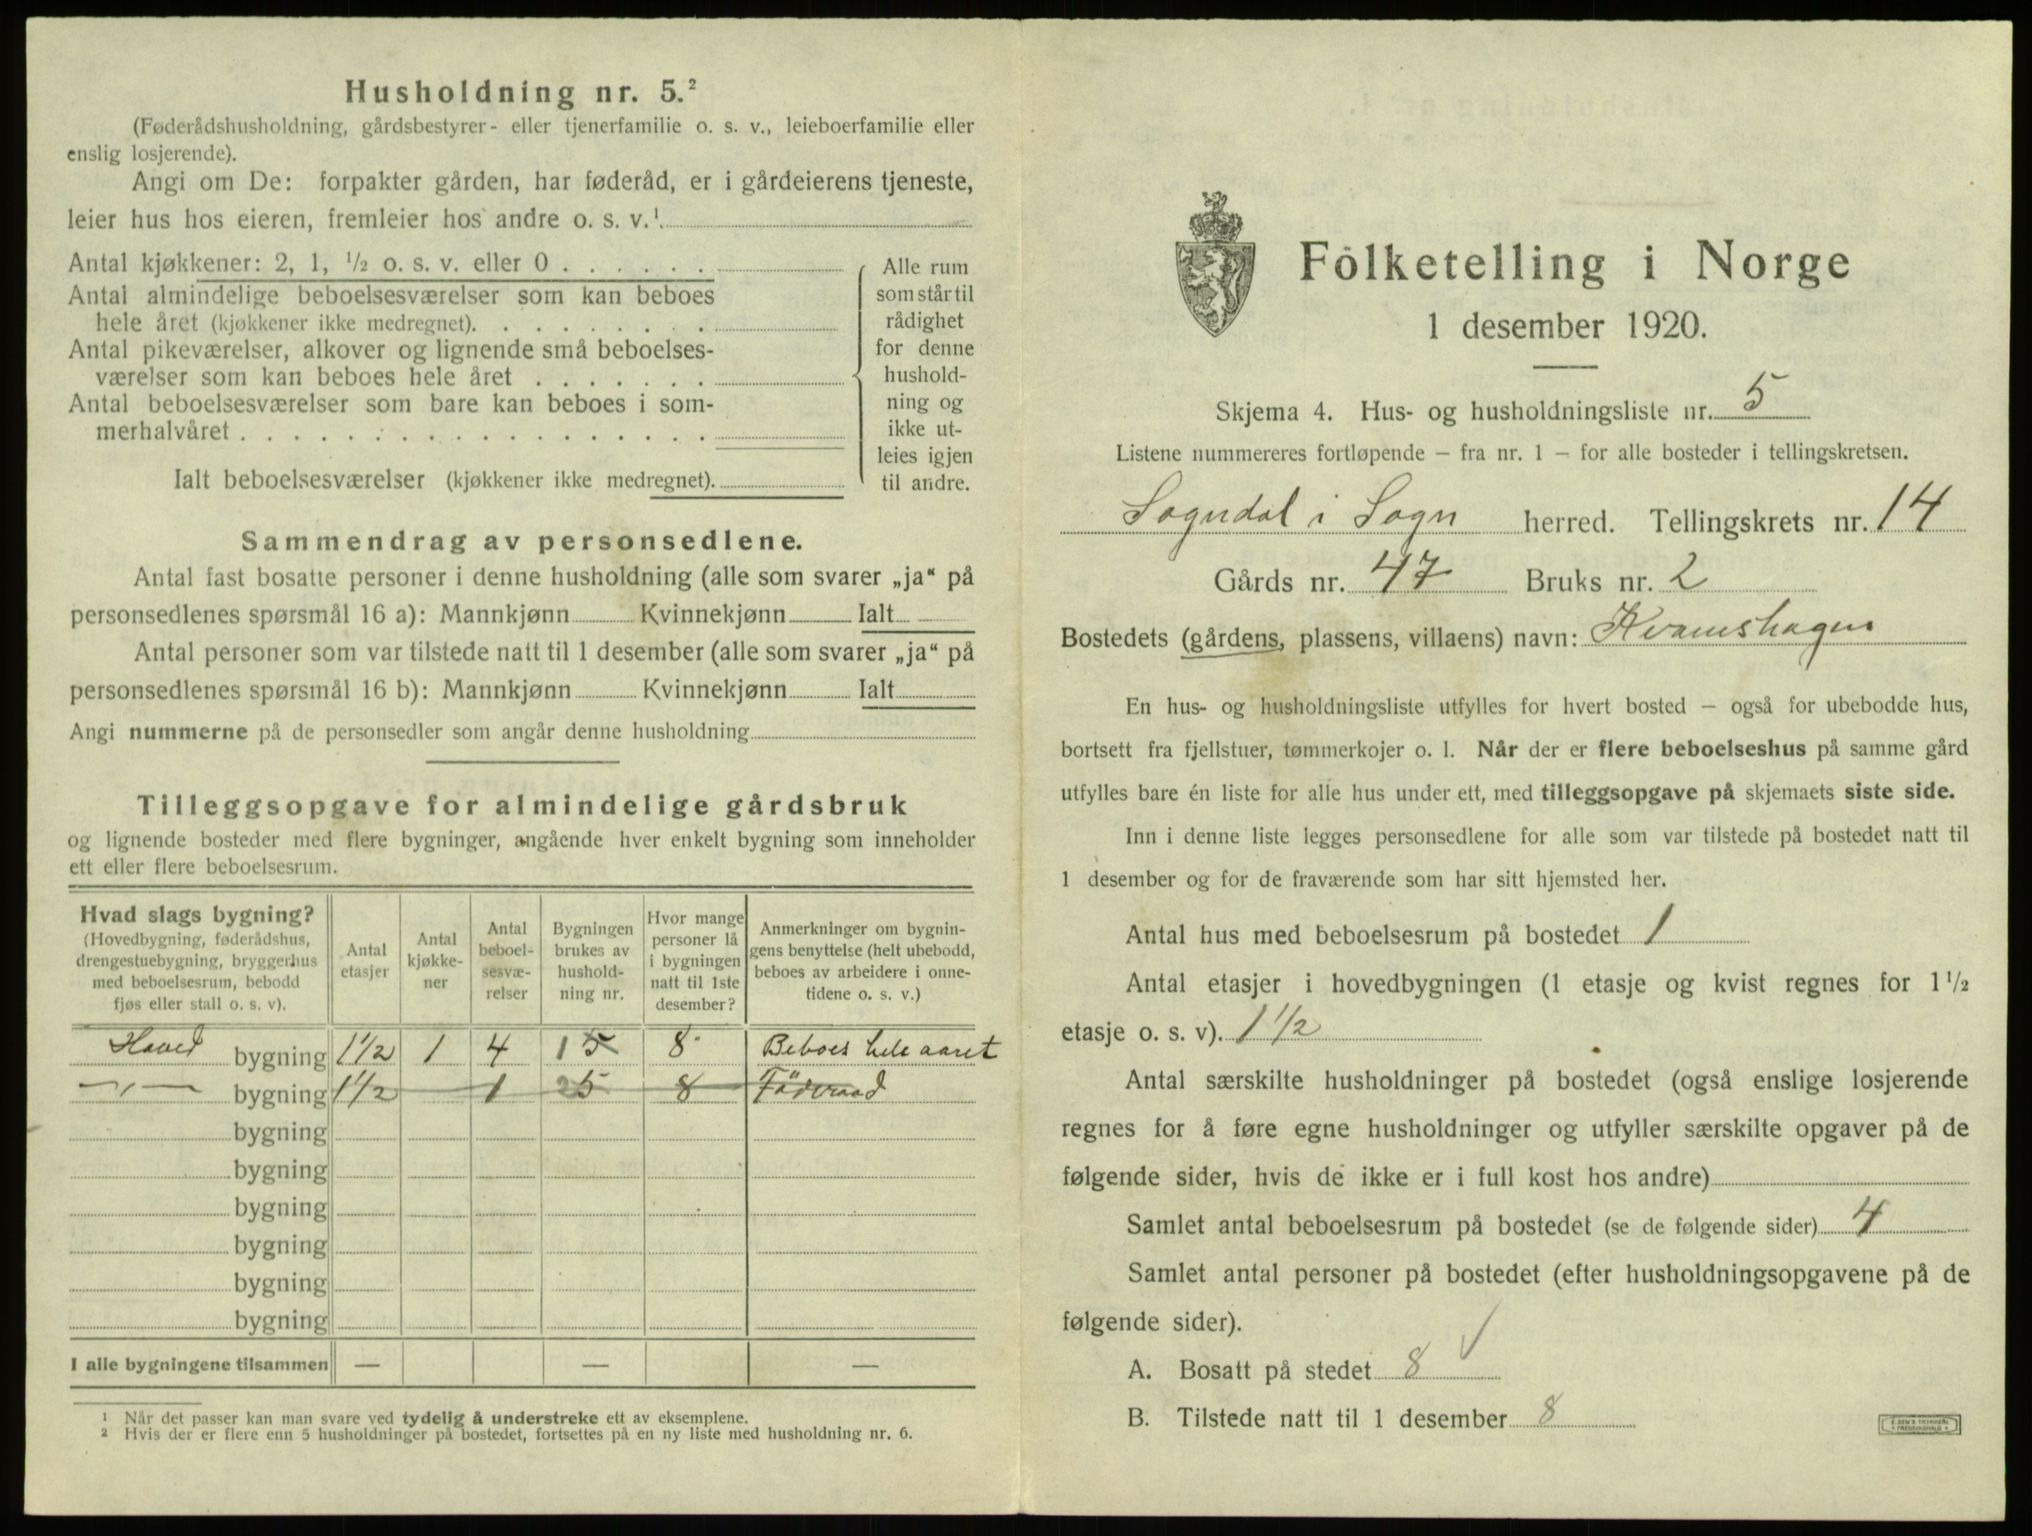 Husholdning nr. 5.²
(Føderådshusholdning, gårdsbestyrer- eller tjenerfamilie o. s. v., leieboerfamilie eller
enslig losjerende).
Angi om De: forpakter gården, har føderåd, er i gårdeierens tjeneste,
leier hus hos eieren, fremleier hos andre o. s. v.¹
Antal kjøkkener: 2, 1, ½ o. s. v. eller 0 . . . . . .
Antal almindelige beboelsesværelser som kan beboes
hele året (kjøkkener ikke medregnet). . . . . . . . .
Antal pikeværelser, alkover og lignende små beboelses-
værelser som kan beboes hele året . . . . . . .
Antal beboelsesværelser som bare kan beboes i som-
merhalvåret . . . . . . . . . . . . . . . . . .
Ialt beboelsesværelser (kjøkkener ikke medregnet).
Alle rum
som står til
rådighet
for denne
hushold-
ning og
ikke ut-
leies igjen
til andre.
Sammendrag av personsedlene.
Antal fast bosatte personer i denne husholdning (alle som svarer „ja“ på
personsedlenes spørsmål 16 a): Mannkjønn Kvinnekjønn Ialt
Antal personer som var tilstede natt til 1 desember (alle som svarer „ja“ på
personsedlenes spørsmål 16 b): Mannkjønn Kvinnekjønn Ialt
Angi nummerne på de personsedler som angår denne husholdning
Tilleggsopgave for almindelige gårdsbruk
og lignende bosteder med flere bygninger, angående hver enkelt bygning som inneholder
ett eller flere beboelsesrum.
Hvad slags bygning?
(Hovedbygning, føderådshus,
drengestuebygning, bryggerhus
med beboelsesrum, bebodd
fjøs eller stall o. s. v).
Antal
etasjer
Antal
kjøkke-
ner
Antal
beboel-
sesvæ-
relser
Bygningen
brukes av
hushold-
ning nr.
Hvor mange
personer lå
i bygningen
natt til 1ste
desember?
Anmerkninger om bygnin-
gens benyttelse (helt ubebodd,
beboes av arbeidere i onne-
tidene o. s. v.)
Hoved bygning 1½ 1 4 1 5 8 Beboes hele aaret
—„— bygning 1½ 1 25 8 Föderaad
bygning
bygning
bygning
bygning
bygning
bygning
I alle bygningene tilsammen — — —
¹ Når det passer kan man svare ved tydelig å understreke ett av eksemplene.
² Hvis der er flere enn 5 husholdninger på bostedet, fortsettes på en ny liste med husholdning nr. 6.
Folketelling i Norge
1 desember 1920.
Skjema 4. Hus- og husholdningsliste nr. 5
Listene nummereres fortløpende – fra nr. 1 – for alle bosteder i tellingskretsen.
Sogndal i Sogn herred. Tellingskrets nr. 14
Gårds nr. 47 Bruks nr. 2
Bostedets (gårdens, plassens, villaens) navn: Kvamshagen
En hus- og husholdningsliste utfylles for hvert bosted – også for ubebodde hus,
bortsett fra fjellstuer, tømmerkojer o. l. Når der er flere beboelseshus på samme gård
utfylles bare én liste for alle hus under ett, med tilleggsopgave på skjemaets siste side.
Inn i denne liste legges personsedlene for alle som var tilstede på bostedet natt til
1 desember og for de fraværende som har sitt hjemsted her.
Antal hus med beboelsesrum på bostedet 1
Antal etasjer i hovedbygningen (1 etasje og kvist regnes for 1½
etasje o. s. v). 1½
Antal særskilte husholdninger på bostedet (også enslige losjerende
regnes for å føre egne husholdninger og utfyller særskilte opgaver på de
følgende sider, hvis de ikke er i full kost hos andre)
Samlet antal beboelsesrum på bostedet (se de følgende sider) 4
Samlet antal personer på bostedet (efter husholdningsopgavene på de
følgende sider).
A. Bosatt på stedet 8 ✓
B. Tilstede natt til 1 desember 8